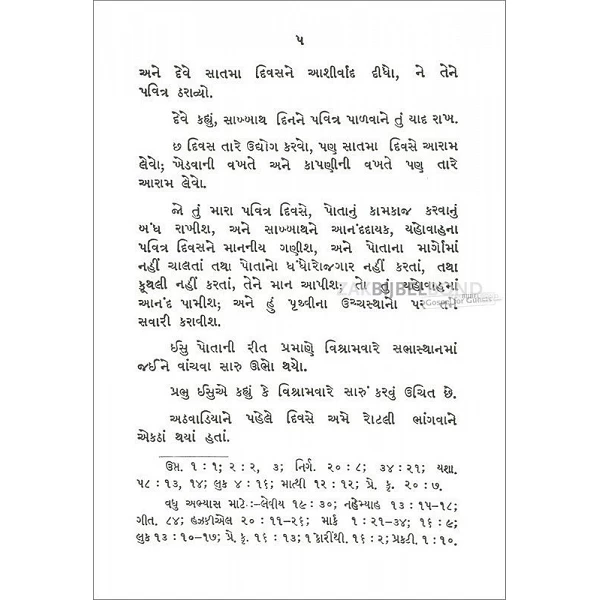 ૫
અને દેવે સાતમા દિવસને આશીર્વાદ દીધો, ને તેને
પવિત્ર ઠરાવ્યો.
દેવે કહ્યું, સાબ્બાથ દિનને પવિત્ર પાળવાને તું યાદ રાખ.
છ દિવસ તારે ઉદ્યોગ કરવો, પણ સાતમા દિવસે આરામ
લેવો; ખેડવાની વખતે અને કાપણીની વખતે પણ તારે
આરામ લેવો.
જો તું મારા પવિત્ર દિવસે, પોતાનું કામકાજ કરવાનું
બંધ રાખીશ, અને સાબ્બાથને આનંદદાયક, યહોવાહના
પવિત્ર દિવસને માનનીય ગણીશ, અને પોતાના માર્ગોમાં
નહીં ચાલતાં તથા પોતાનો ધંધોરોજગાર નહીં કરતાં, તથા
કૂથલી નહીં કરતાં, તેને માન આપીશ; તો તું યહોવાહમાં
આનંદ પામીશ; અને હું પૃથ્વીના ઉચ્ચસ્થાનો પર તને
સવારી કરાવીશ.
ઈસુ પોતાની રીત પ્રમાણે વિશ્રામવારે સભાસ્થાનમાં
જઈને વાંચવા સારુ ઊભો થયો.
પ્રભુ ઈસુએ કહ્યું કે વિશ્રામવારે સારું કરવું ઉચિત છે.
અઠવાડિયાને પહેલે દિવસે અમે રોટલી ભાંગવાને
એકઠાં થયાં હતાં.
ઉત્પ. ૧ : ૧; ૨ : ૨, ૩; નિર્ગ. ૨૦ : ૮; ૩૪ : ૨૧; યશા.
૫૮ : ૧૩, ૧૪; લુક ૪ : ૧૬; માત્થી ૧૨ : ૧૨; પ્રે. કૃ. ૨૦ : ૭.
વધુ અભ્યાસ માટે :–લેવીય ૧૯ : ૩૦; નહેમ્યાહ ૧૩ : ૧૫–૧૮;
ગીત. ૮૪; હઝકીએલ ૨૦ : ૧૧–૨૬; માર્ક ૧ : ૨૧–૩૪; ૧૬ : ૯;
લુક ૧૩ : ૧૦–૧૭; પ્રે. કૃ. ૧૬ : ૧૩; ૧ કોરીંથી. ૧૬ : ૨; પ્રકટી. ૧ : ૧૦.
ZAKBIJBELBOND